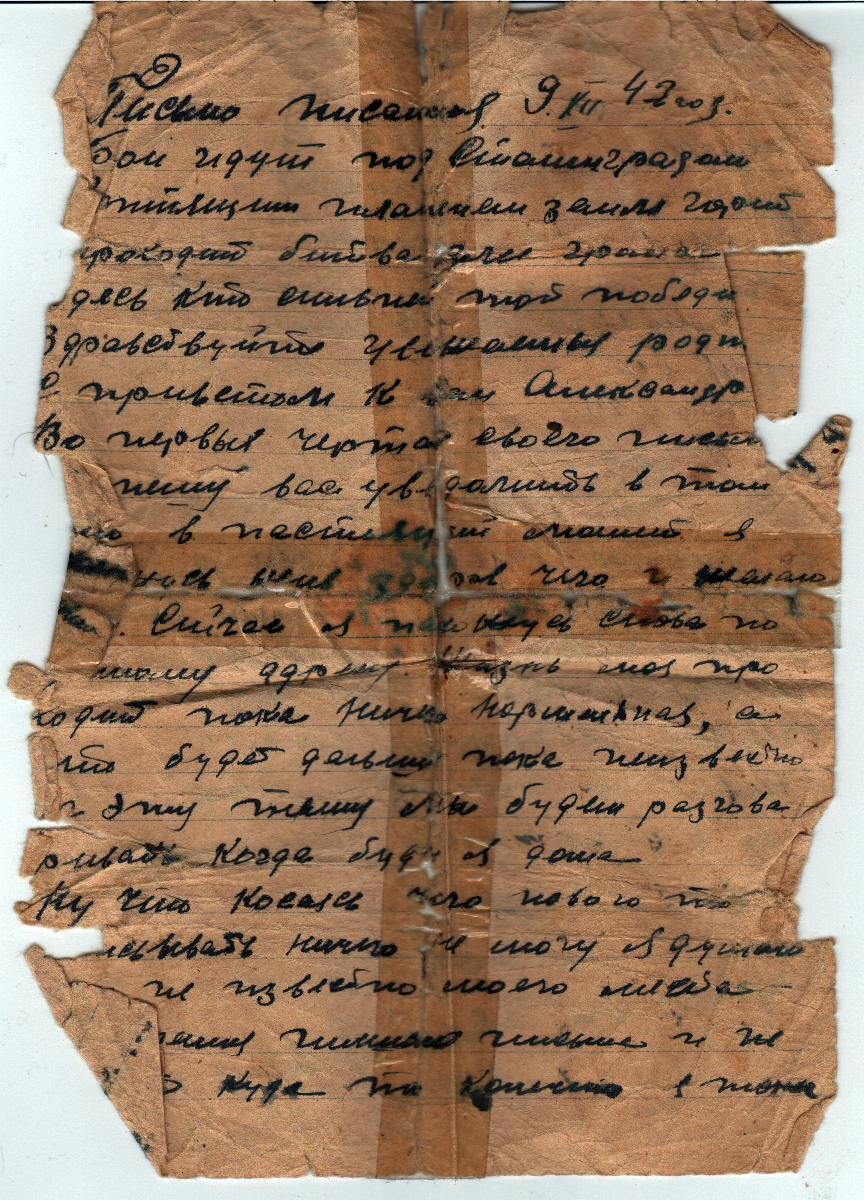 Письмо писаноя 9.XII 42 год.
Бои идут под Сталинградом
пламенем земля горит
проходит битва
десь кто сильней тот победи
Здравствуйте уважаемыя родн
С приветом к вам Александр
Во первых чертах своего письм
вас уведомить в том
в настаящий момент я
жив здоров чего и желаю
Сичас я нахожусь снова по
адресу. Жизнь моя про
ходит пока ничео нормальная, а
што будет дальше пока неизвестно
эту тему мы будем разгова
ривать когда буду я дома
Ну что косаясь чего нового то
ничего не могу я думаю
не известно моего места
письма и не
куда то конечно я тоже